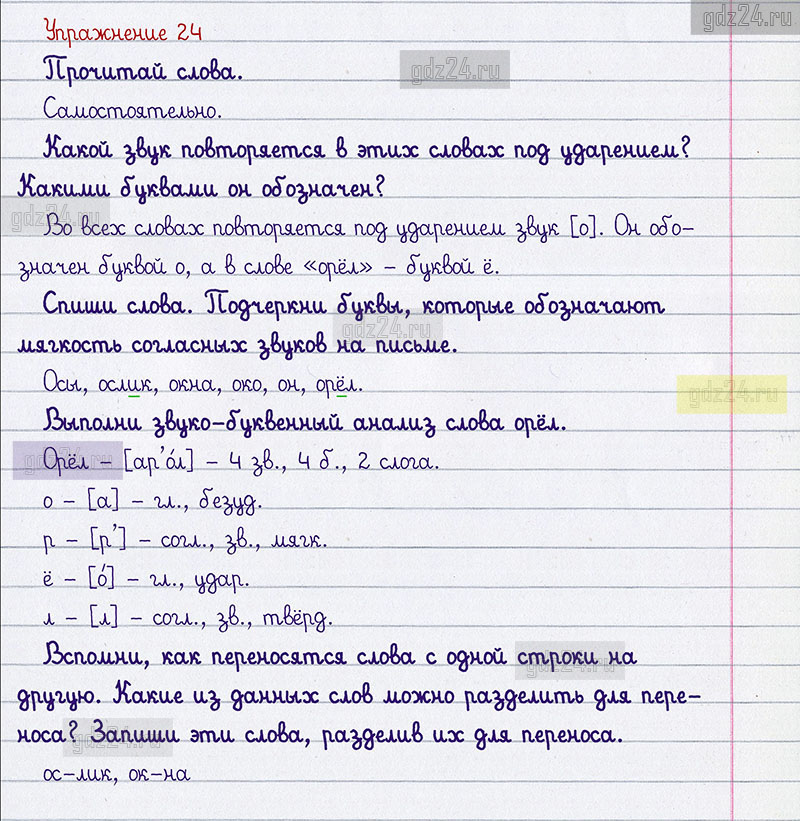 gdz24.ru
Упражнение 24
Прочитай слова.
gdz24.ru
Самостоятельно.
Какой звук повторяется в этих словах под ударением?
Какими буквами он обозначен?
gdz24.ru
Во всех словах повторяется под ударением звук [о]. Он обо-
значен буквой о, а в слове «орёл» – буквой ё.
Спиши слова. Подчеркни буквы, которые обозначают
gdz24.ru
мягкость согласных звуков на письме.
Осы, ослик, окна, око, он, орёл.
gdz24.ru
Выполни звуко-буквенный анализ слова орёл.
Орёл – [ар’о́л] – 4 зв., 4 б., 2 слога.
gdz24.ru
о – [а] – гл., безуд.
р – [р’] – согл., зв., мягк.
ё – [о́] – гл., удар.
л – [л] – согл., зв., твёрд.
Вспомни, как переносятся слова с одной строки на
gdz24.ru
другую. Какие из данных слов можно разделить для пере-
носа? Запиши эти слова, разделив их для переноса.
gdz24.ru
ос-лик, ок-на